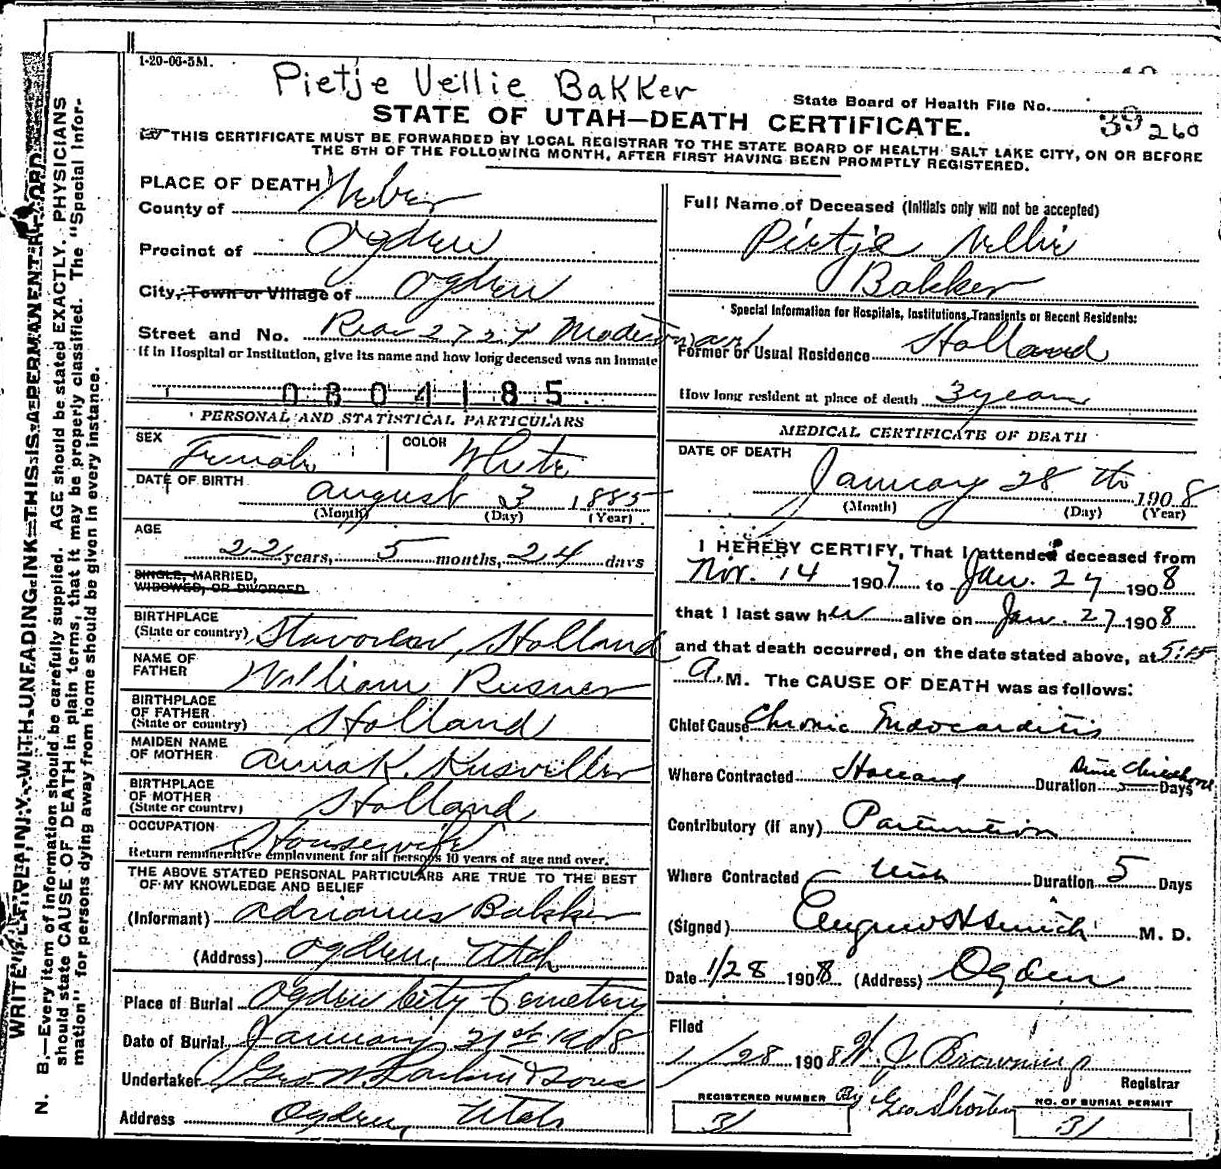 1-20-06-5M.
Pietje Vellie Bakker
State Board of Health File No. 39 260
STATE OF UTAH—DEATH CERTIFICATE.
THIS CERTIFICATE MUST BE FORWARDED BY LOCAL REGISTRAR TO THE STATE BOARD OF HEALTH SALT LAKE CITY, ON OR BEFORE
THE 5TH OF THE FOLLOWING MONTH, AFTER FIRST HAVING BEEN PROMPTLY REGISTERED.
WRITE PLAINLY, WITH UNFADING INK—THIS IS A PERMANENT RECORD
N. B.—Every item of information should be carefully supplied. AGE should be stated EXACTLY. PHYSICIANS
should state CAUSE OF DEATH in plain terms, that it may be properly classified. The "Special Infor-
mation" for persons dying away from home should be given in every instance.
PLACE OF DEATH
County of Weber
Precinct of Ogden
City, Town or Village of Ogden
Street and No. Rear 2724
If in Hospital or Institution, give its name and how long deceased was an Inmate
0804185
PERSONAL AND STATISTICAL PARTICULARS
SEX Female
COLOR White
DATE OF BIRTH
August 3 1885
(Month) (Day) (Year)
AGE
22 years, 5 months, 24 days
SINGLE, MARRIED,
WIDOWED, OR DIVORCED
BIRTHPLACE
(State or country) Holland
NAME OF
FATHER William
BIRTHPLACE
OF FATHER
(State or country) Holland
MAIDEN NAME
OF MOTHER Anna K.
BIRTHPLACE
OF MOTHER
(State or country) Holland
OCCUPATION Housewife
Return remunerative employment for all persons 10 years of age and over.
THE ABOVE STATED PERSONAL PARTICULARS ARE TRUE TO THE BEST
OF MY KNOWLEDGE AND BELIEF
(Informant) Adrianus Bakker
(Address) Ogden, Utah
Place of Burial Ogden City Cemetery
Date of Burial January 31st 1908
Undertaker Geo W. Larkin & Sons
Address Ogden, Utah
Full Name of Deceased (Initials only will not be accepted)
Pietje Nellie
Bakker
Special Information for Hospitals, Institutions, Transients or Recent Residents:
Former or Usual Residence Holland
How long resident at place of death 3 years
MEDICAL CERTIFICATE OF DEATH
DATE OF DEATH
January 28 th 1908
(Month) (Day) (Year)
I HEREBY CERTIFY, That I attended deceased from
Nov. 14 1907 to Jan. 27 1908
that I last saw her alive on Jan. 27 1908
and that death occurred, on the date stated above, at 5:15
A. M. The CAUSE OF DEATH was as follows:
Chief Cause Chronic Endocarditis
Where Contracted Holland Duration Since Childhood Days
Contributory (if any) Parturition
Where Contracted Utah Duration 5 Days
(Signed) M. D.
Date 1/28 1908 (Address) Ogden
Filed
1/28 1908 W. J. Browning
Registrar
REGISTERED NUMBER By Geo. Shorten NO. OF BURIAL PERMIT
31 31